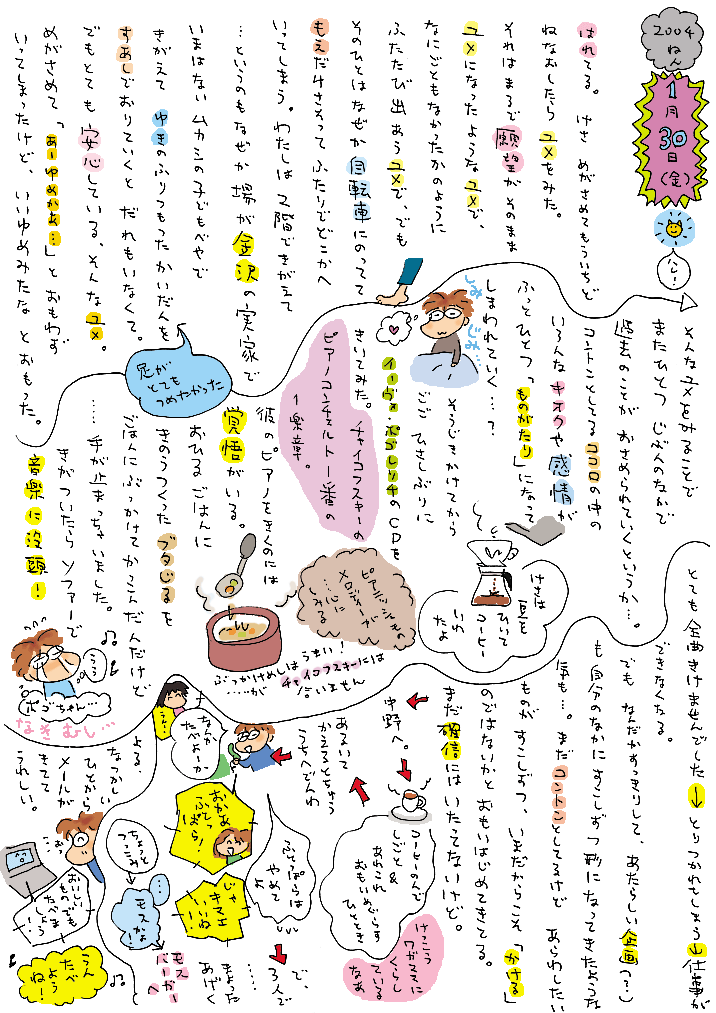 2004
ねん
1月30日(金)
ハレ!
はれてる。 けさ めがさめてもういちど
ねなおしたら ユメをみた。
それはまるで願望がそのまま
ユメになったようなユメで、
なにごともなかったかのように
ふたたび出あうユメで、でも
そのひとはなぜか自転車にのってて
もえだけさそって ふたりでどこかへ
いってしまう。わたしは 2階できがえて
…というのもなぜか 場が金沢の実家で
いまはない ムカシの子どもべやで
きがえて ゆきのふりつもったかいだんを
すあしでおりていくと だれもいなくて。
でもとても 安心している、そんなユメ。
めがさめて「あーゆめかぁ…」と おもわず
いってしまったけど、いいゆめみたな とおもった。
足が
とても
つめたかった
そんなユメをみることで
またひとつ じぶんのなかで
過去のことが おさめられていくというか…。
コントンとしてるココロの中の
いろんなキオクや感情が
ふっとひとつ「ものがたり」になって
しまわれていく…?
しみ
じみ…
そうじきかけてから
ごご ひさしぶりに
イーヴォ・ポゴレリッチのCDを
きいてみた。 チャイコフスキーの
ピアノコンチェルト一番の
1楽章。
彼のピアノをきくのには
覚悟がいる。
おひるごはんに
きのうつくった ブタじるを
ごはんにぶっかけてかきこんだんだけど
……手が止まっちゃいました。
きがついたらソファーで
音楽に没頭!
けさは
豆を
ひいて
コーヒー
いれ
たよ
ピアニッシモの
メロディーが
…心に
しみる
ぶっかけめしはうまい!
……が
チャイコフスキーには
合いません
ううう
ポゴちゃん…
なきむし…
とても 金書きけませんでした→とりつかれてしまう 仕事が
できなくなる。
でも なんだかすっきりして、あたらしい企画(?)
も自分のなかにすこしずつ形になってきたような
気も…。まだコントンとしてるけど あらわしたい
ものが すこしずつ、いまだからこそ「かける」
のではないかと おもいはじめてきてる。
まだ確信にはいたってないけど。
中野へ。
コーヒーのんで
しごと&
あれこれ
おもいめぐらす
ひととき
けっこう
ワガママに
くらし
ている
なあ
あるいて
かえるとちゅう
うちへでんわ
なんか
たべよーか
うん…
おかあ
ふとっ
ぱら!
ふとっぱらは
やめて
よ
じゃ
キマエ
いいね!
で、
3人で
……
まよった
あげく
モス
バーガー
へ
モスかぁ
…
ちょっと
つっこみ
よる、
なつかしい
ひとから
メールが
きてて
うれしい。
おいしい
ものでも
たべま
しょう
!
うん
たべ
よう
ね!